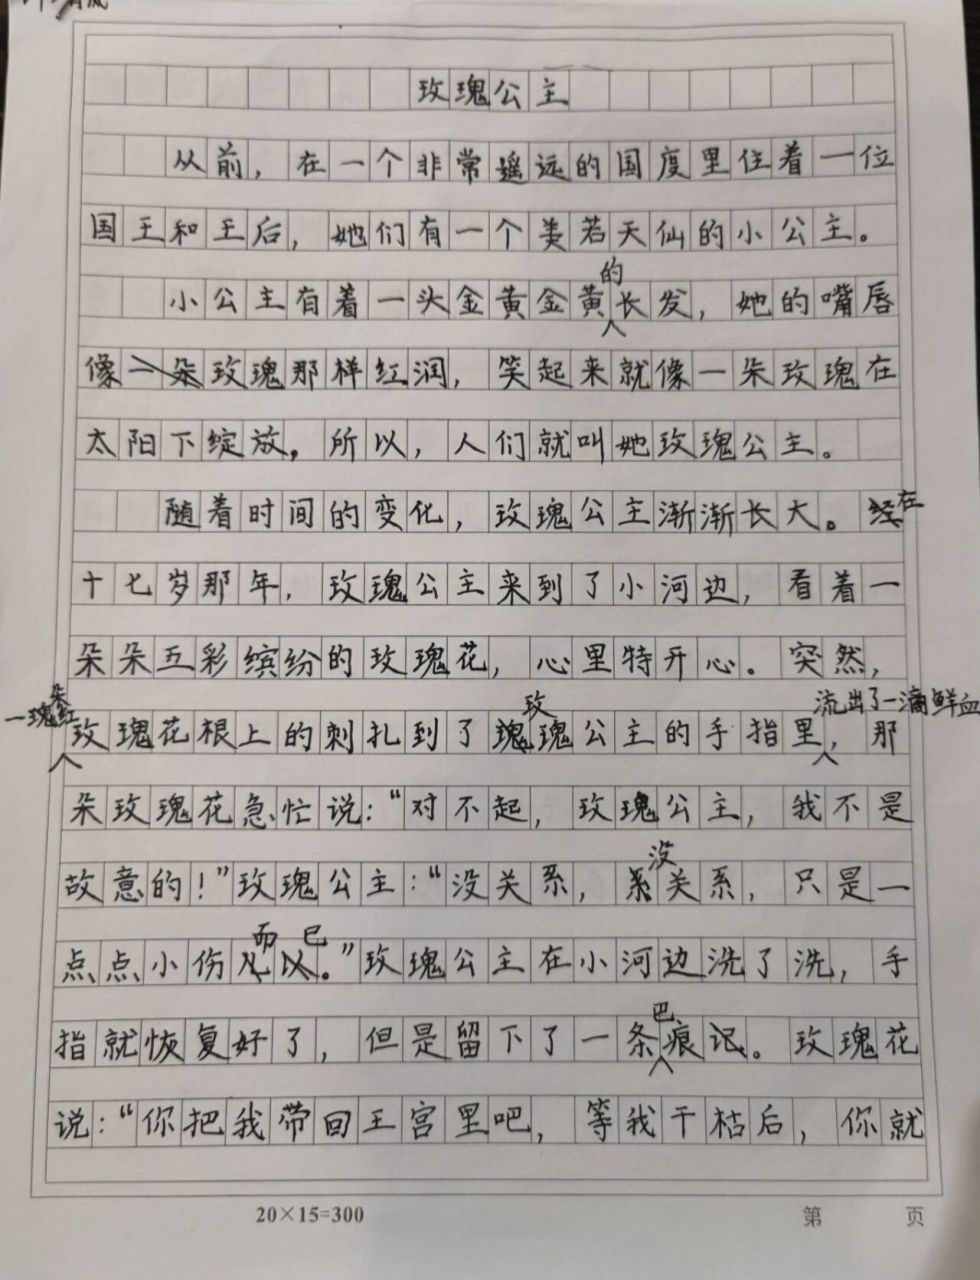 玫瑰公主
从前，在一个非常遥远的国度里住着一位
国王和王后，她们有一个美若天仙的小公主。
小公主有着一头金黄金黄的长发，她的嘴唇
像玫瑰那样红润，笑起来就像一朵玫瑰在
太阳下绽放。所以，人们就叫她玫瑰公主。
随着时间的变化，玫瑰公主渐渐长大。在
十七岁那年，玫瑰公主来到了小河边，看着一
朵朵五彩缤纷的玫瑰花，心里特开心。突然，
一朵红玫瑰花根上的刺扎到了玫瑰公主的手指里流出了一滴鲜血，那
朵玫瑰花急忙说：“对不起，玫瑰公主，我不是
故意的！”玫瑰公主：“没关系，没关系，只是一
点点小伤而已。”玫瑰公主在小河边洗了洗，手
指就恢复好了，但是留下了一条疤痕。玫瑰花
说：“你把我带回王宫里吧，等我干枯后，你就
20×15=300
第 页